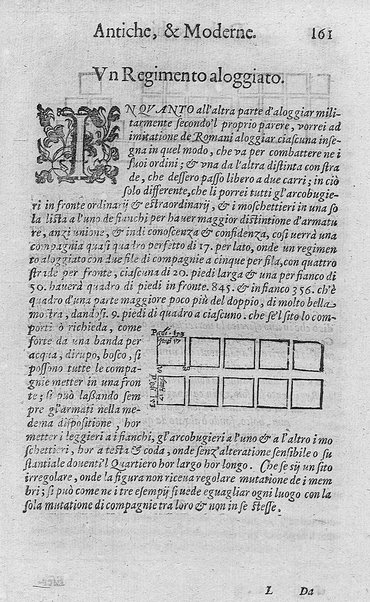 Antiche, & Moderne. 161
Vn Regimento aloggiato.
IN QVANTO all'altra parte d'aloggiar mili-
tarmente secondo'l proprio parere, vorrei ad
imitatione de Romani aloggiar ciascuna inse-
gna in quel modo, che va per combattere ne i
suoi ordini; & vna da l'altra distinta con stra
de, che dessero passo libero a carri; in ciò
solo differente, che li porrei tutti gl'arcobugie
ri in fronte ordinarij & estraordinarij, & i moschettieri in vna so
la lista a l'uno de fianchi per hauer maggior distintione d'armatu
re, anzi unione, & indi conoscenza & confidenza, cosi uerrà una
compagnia quasi quadro perfetto di 17. per lato, onde un regimen
to aloggiato con due file di compagnie a cinque per fila, con quattro
strade per fronte, ciascuna di 20. piedi larga & una per fianco di
50. hauerà quadro di piedi in fronte. 845. & in fianco 356. ch'è
quadro d'una parte maggiore poco più del doppio, di molto bella
mostra, dandosi. 9. piedi di quadro a ciascuno. che se'l sito lo com-
porti ò richieda, come
forte da una banda per
acqua, dirupo, bosco, si
possono tutte le compa-
gnie metter in una fron
te; si può laßando sem
pre gl'armati nella me-
dema dispositione, hor
metter i leggieri a i fianchi, gl'arcobugieri a l'uno & a l'altro i mo
schettieri, hor a testa & coda, onde senz'alteratione sensibile o su
stantiale douenti'l Quartiero hor largo hor longo. Che se sij un sito
irregolare, onde la figura non riceua regolare mutatione de i mem
bri; si può come ne i tre esempij si uede eguagliar ogni luogo con la
sola mutatione di compagnie tra loro & non in se stesse.
L Da